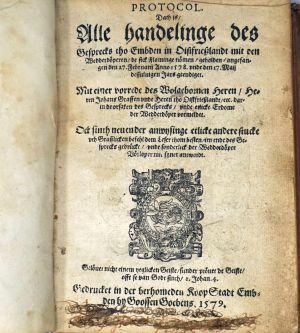 PROTOCOL.
Dath is/
Alle handelinge des
Gesprecks tho Embden in Oistfrießlandt mit den
Wedderdöperen/ de sick Fleminge nömen/ geholden/ angefangen
den 27. Februarij Anno 1578. vnde den 17. Maij
dessüluigen Jars geendiget.
Mit einer vorrede des Wolgebornen Heren/ Heren
Johans Graffen vnde Heren tho Oistfrießlandt/ etc. darin
de orsaken des Gesprecks/ vnde etlicke Erdome
der Wedderdöper vormeldet.
Ock sinth neuender anwysinge etlicke andere stucke
vth
befehl dem Leser thom besten/ im ende des Gesprecks
gedrücket/ vnde
der Wedderdöper
Gelöuet nicht einem yegliken Geiste/ sunder pröuet de Geiste/
offt se van Godt sinth/ 1. Johan. 4.
Gedrucket in der berhömeden Koop Stadt Embden
by Goossen Goebens. 1579.